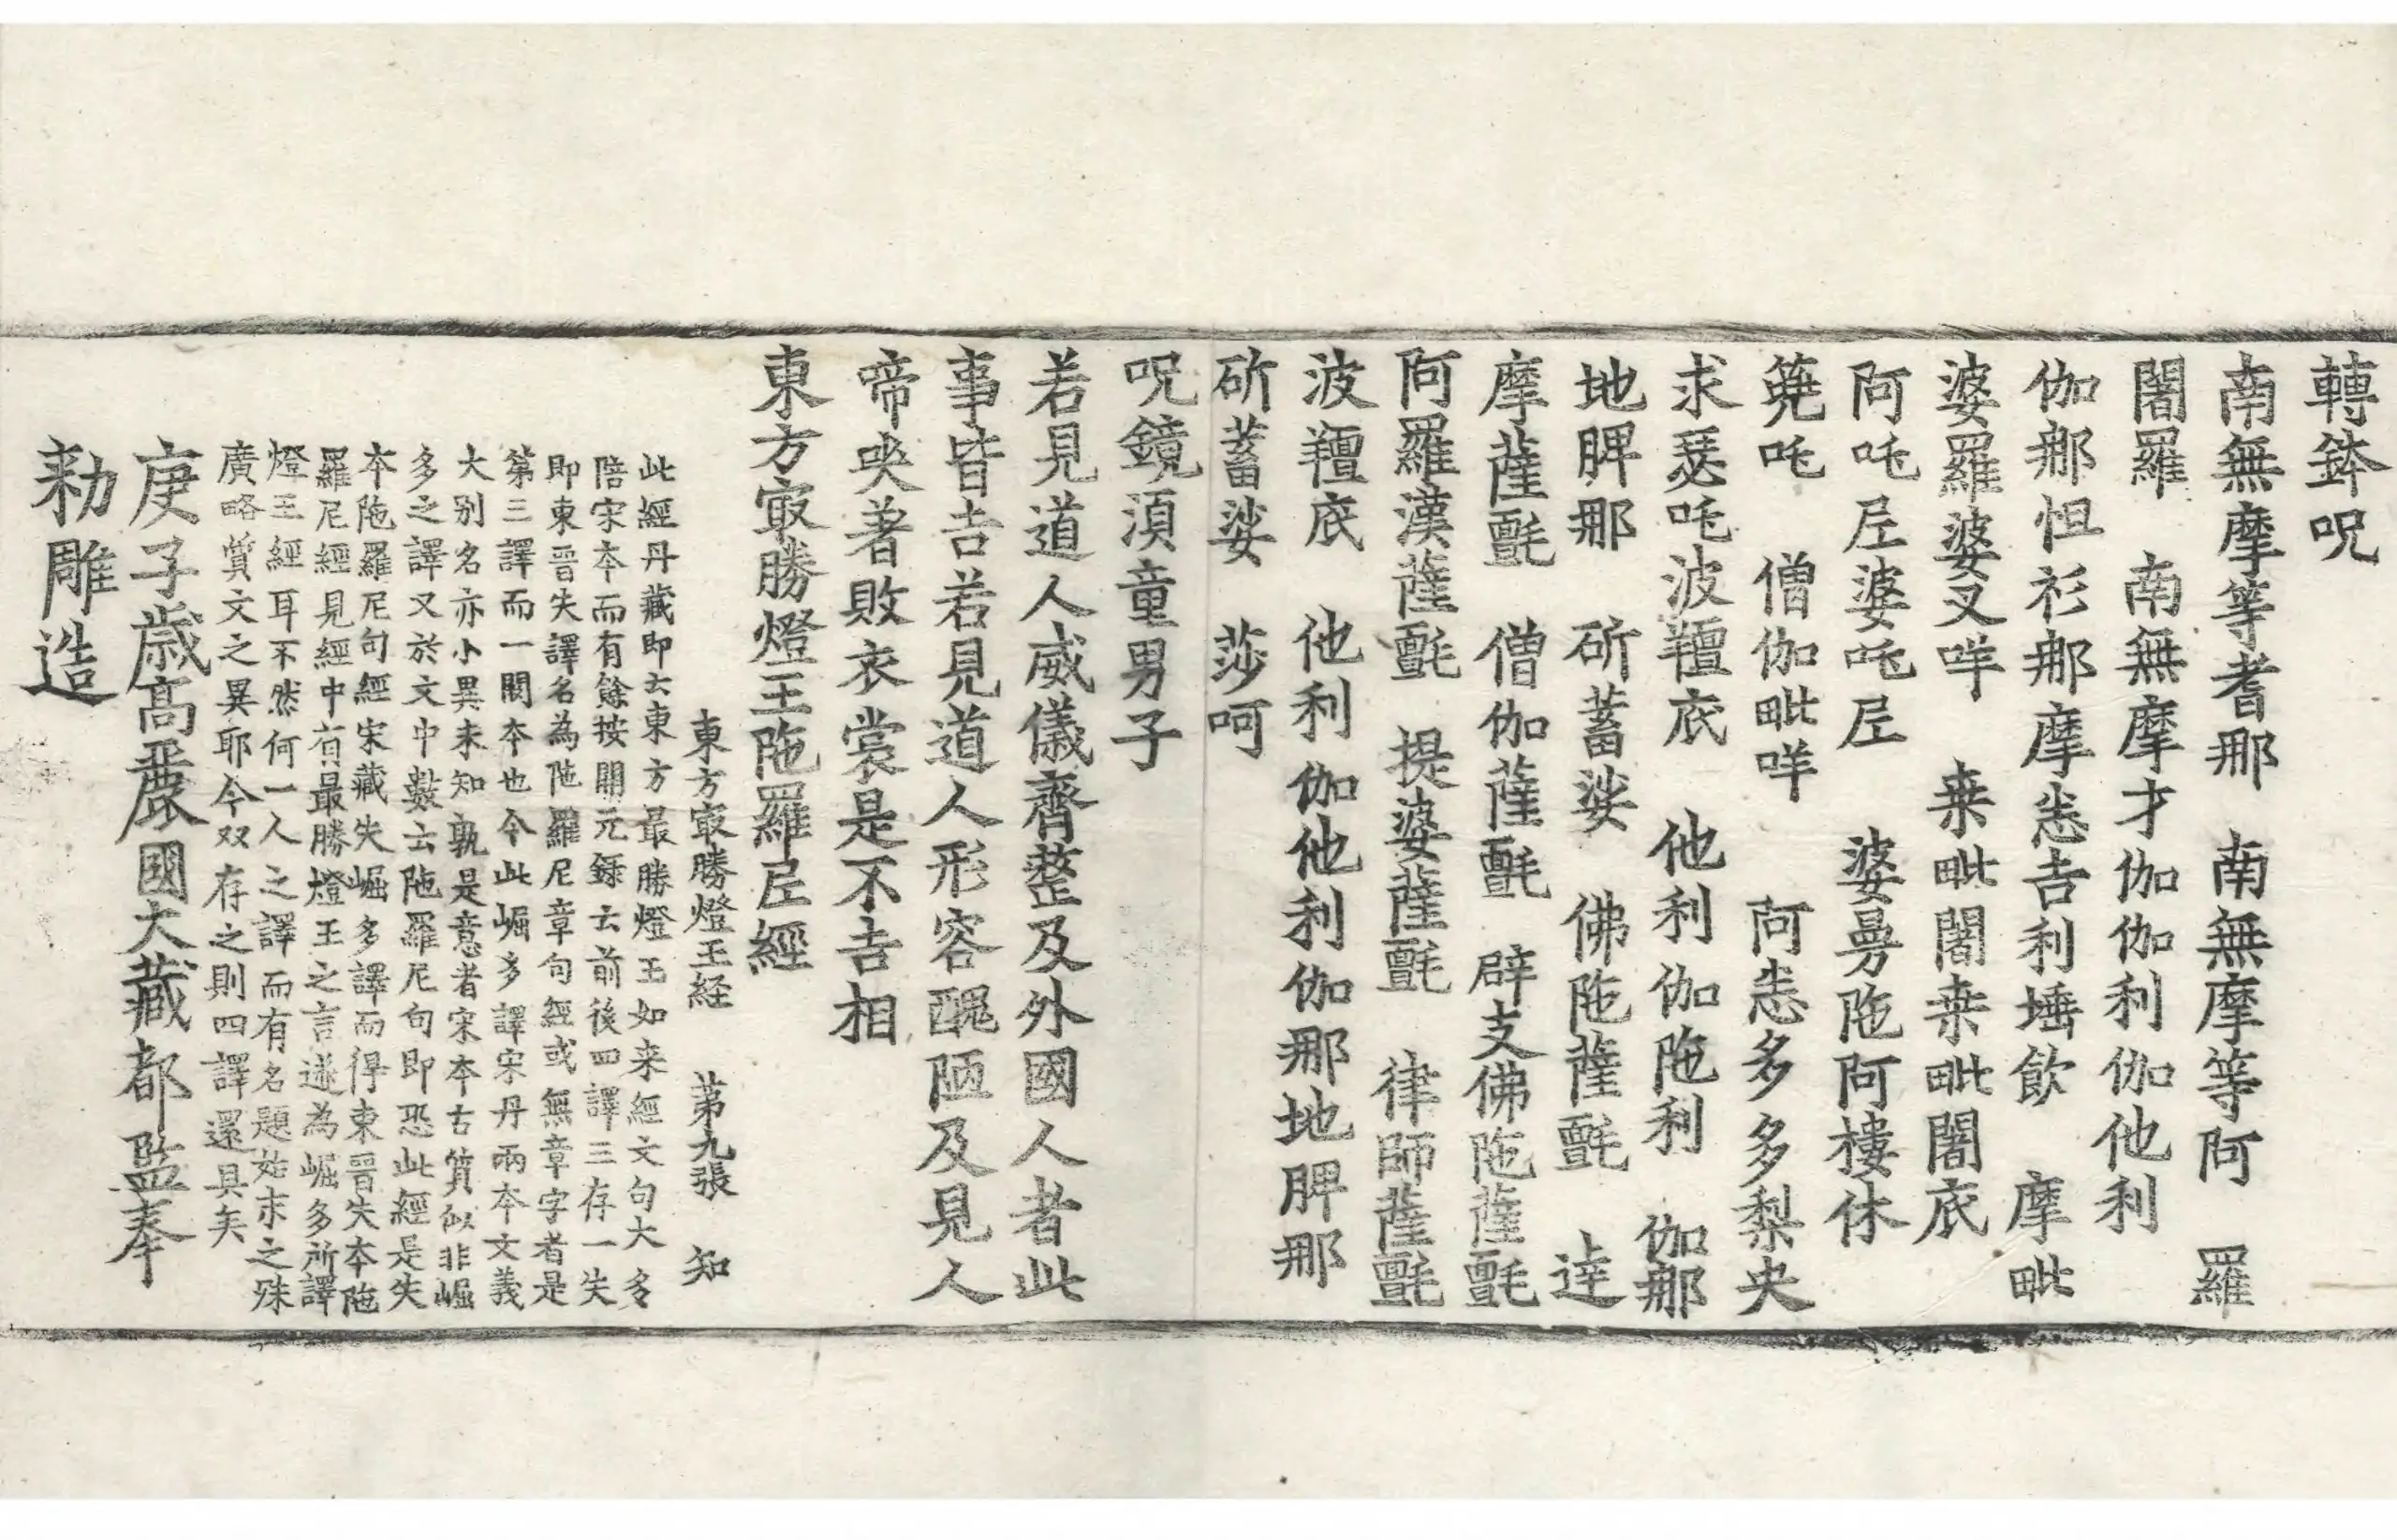 轉鉢呪
南無摩等耆那　南無摩等阿　羅
闍羅　南無摩才伽伽利伽他利
伽那怛衫那摩恙吉利埵飲　摩毗
婆羅婆叉哶　桒毗闍桒毗闍底
阿吒𡰱婆吒𡰱　婆曼陁阿樓休
箢吒　僧伽毗哶　阿恙多多梨央
求瑟吒波羶底　他利伽陁利　伽那
地脾那　斫蓄娑　佛陁薩㲲　逹
摩薩㲲　僧伽薩㲲　辟支佛陁薩㲲
阿羅漢薩㲲　提婆薩㲲　律師薩㲲
波羶底　他利伽他利伽那地脾那
斫蓄娑　莎呵
呪鏡湏童男子
若見道人威儀齊整及外國人者此
事皆吉若見道人形容醜陋及見人
啼哭著敗衣裳是不吉相
東方㝡勝燈王陁羅𡰱經
東方㝡勝燈王经　苐九張　知
此經丹藏即云東方最勝燈王如来經文句大多
陪宋夲而有餘按開元錄云前後四譯三存一失
即東晉失譯名為陁羅尼章句經或無章字者是
第三譯而一闕夲也今此崛多譯宋丹兩夲文義
大别名亦小異未知孰是意者宋夲古質似非崛
多之譯又於文中數云陁羅尼句即恐此經是失
夲陁羅尼句經宋藏失崛多譯而得東晉失夲陁
羅尼經見經中有最勝燈王之言遂為崛多所譯
燈王經耳不然何一人之譯而有名題始末之殊
廣略質文之異耶今双存之則四譯還具矣
庚子歳髙麗國大藏都監奉
勑雕造